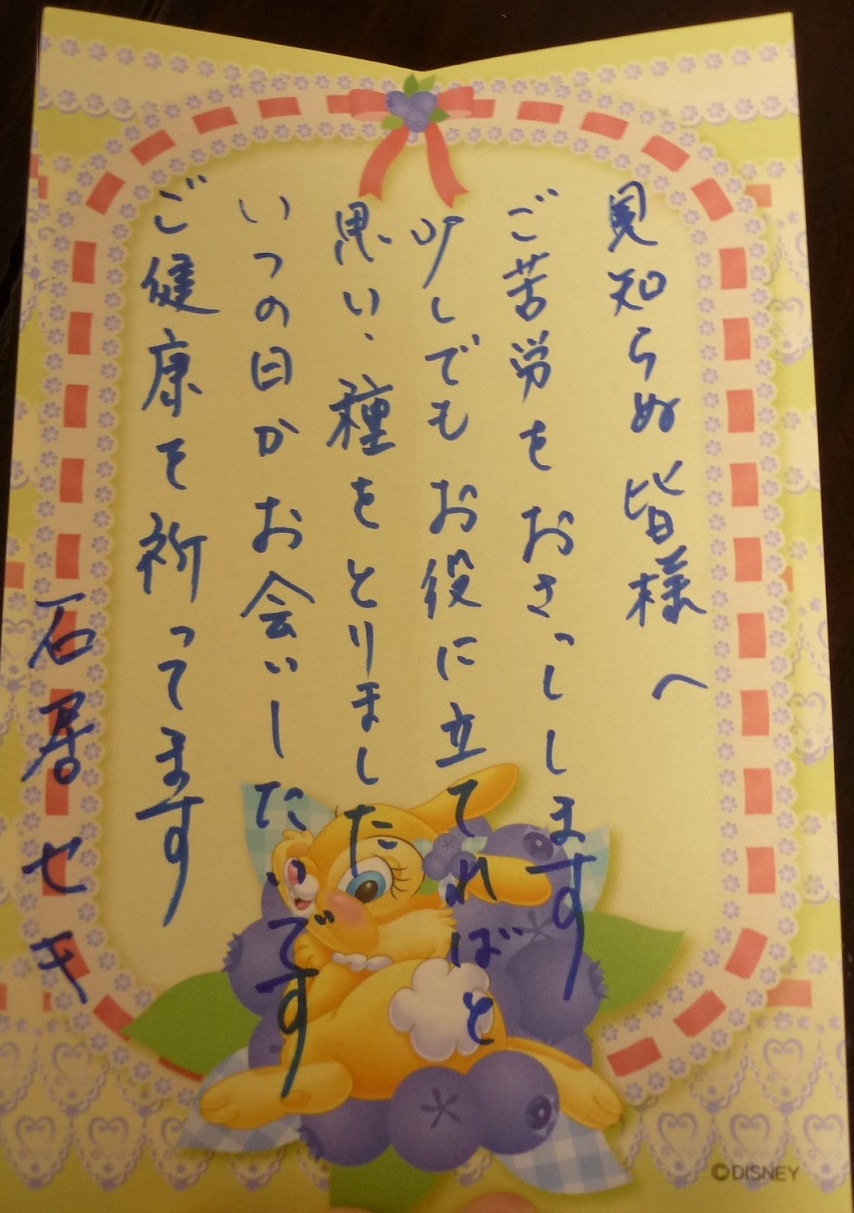 見知らぬ皆様へ
ご苦労をおさっしします
少しでもお役に立てればと
思い、種をとりました
いつの日かお会いしたいです
ご健康を祈ってます
石居セキ
©DISNEY